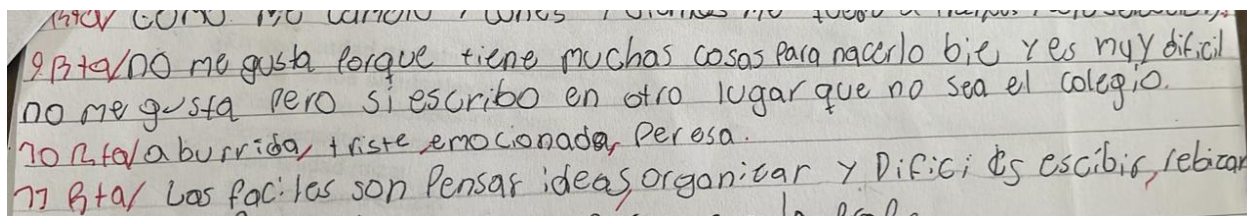 9 Rta/no me gusta porque tiene muchas cosas para hacerlo bie y es muy dificil
no me gusta pero si escribo en otro lugar que no sea el colegio.
10 Rta/aburrida, triste, emocionada, peresa.
11 Rta/ Las faciles son Pensar ideas, organizar y Dificil es escibir, rebizar